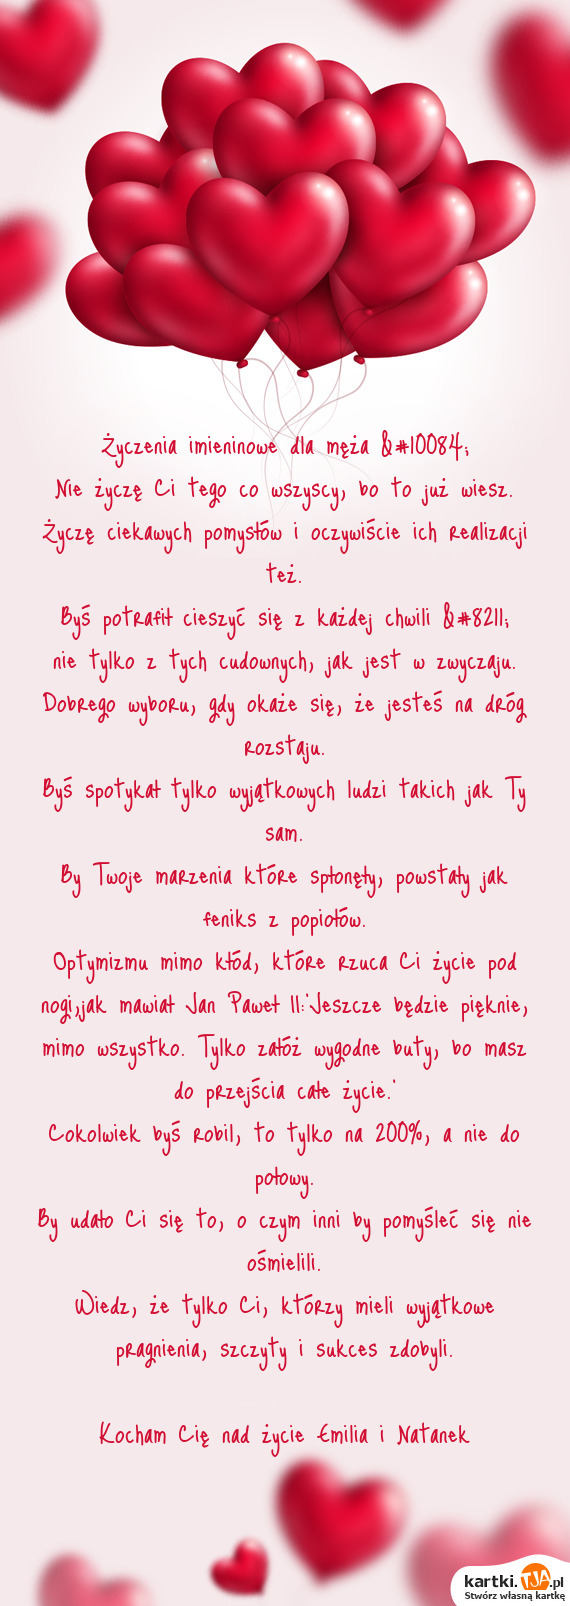 Życzenia imieninowe dla męża &#10084;
Nie życzę Ci tego co wszyscy, bo to już wiesz.
Życzę ciekawych pomysłów i oczywiście ich realizacji
też.
Byś potrafił cieszyć się z każdej chwili &#8211;
nie tylko z tych cudownych, jak jest w zwyczaju.
Dobrego wyboru, gdy okaże się, że jesteś na dróg
rozstaju.
Byś spotykał tylko wyjątkowych ludzi takich jak Ty
sam.
By Twoje marzenia które spłonęły, powstały jak
feniks z popiołów.
Optymizmu mimo kłód, które rzuca Ci życie pod
nogi,jak mawiał Jan Paweł II:"Jeszcze będzie pięknie,
mimo wszystko. Tylko załóż wygodne buty, bo masz
do przejścia całe życie."
Cokolwiek byś robil, to tylko na 200%, a nie do
połowy.
By udało Ci się to, o czym inni by pomyśleć się nie
ośmielili.
Wiedz, że tylko Ci, którzy mieli wyjątkowe
pragnienia, szczyty i sukces zdobyli.
Kocham Cię nad życie Emilia i Natanek
kartki.TJA.pl
Stwórz własną kartkę